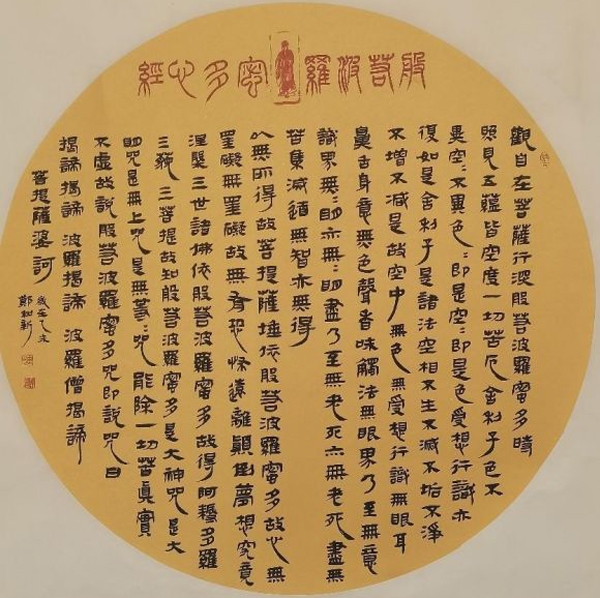 般若波羅密多心經
觀自在菩薩行深般若波羅蜜多時
照見五蘊皆空度一切苦厄舍利子色不
異空:不異色:即是空:即是色受想行識亦
復如是舍利子是諸法空相不生不滅不垢不淨
不增不減是故空中無色無受想行識無眼耳
鼻舌身意無色聲香味觸法無眼界乃至無意
識界無:明亦無:明盡乃至無老死亦無老死盡無
苦集滅道無智亦無得
以無所得故菩提薩埵依般若波羅蜜多故心無
罣礙無罣礙故無有恐怖遠離顛倒夢想究竟
涅槃三世諸佛依般若波羅蜜多故得阿耨多羅
三藐三菩提故知般若波羅蜜多是大神咒是大
明咒是無上咒是無等:咒能除一切苦真實
不虛故說般若波羅蜜多咒即說咒曰
揭諦揭諦 波羅揭諦 波羅僧揭諦
菩提薩婆訶
歲在乙未